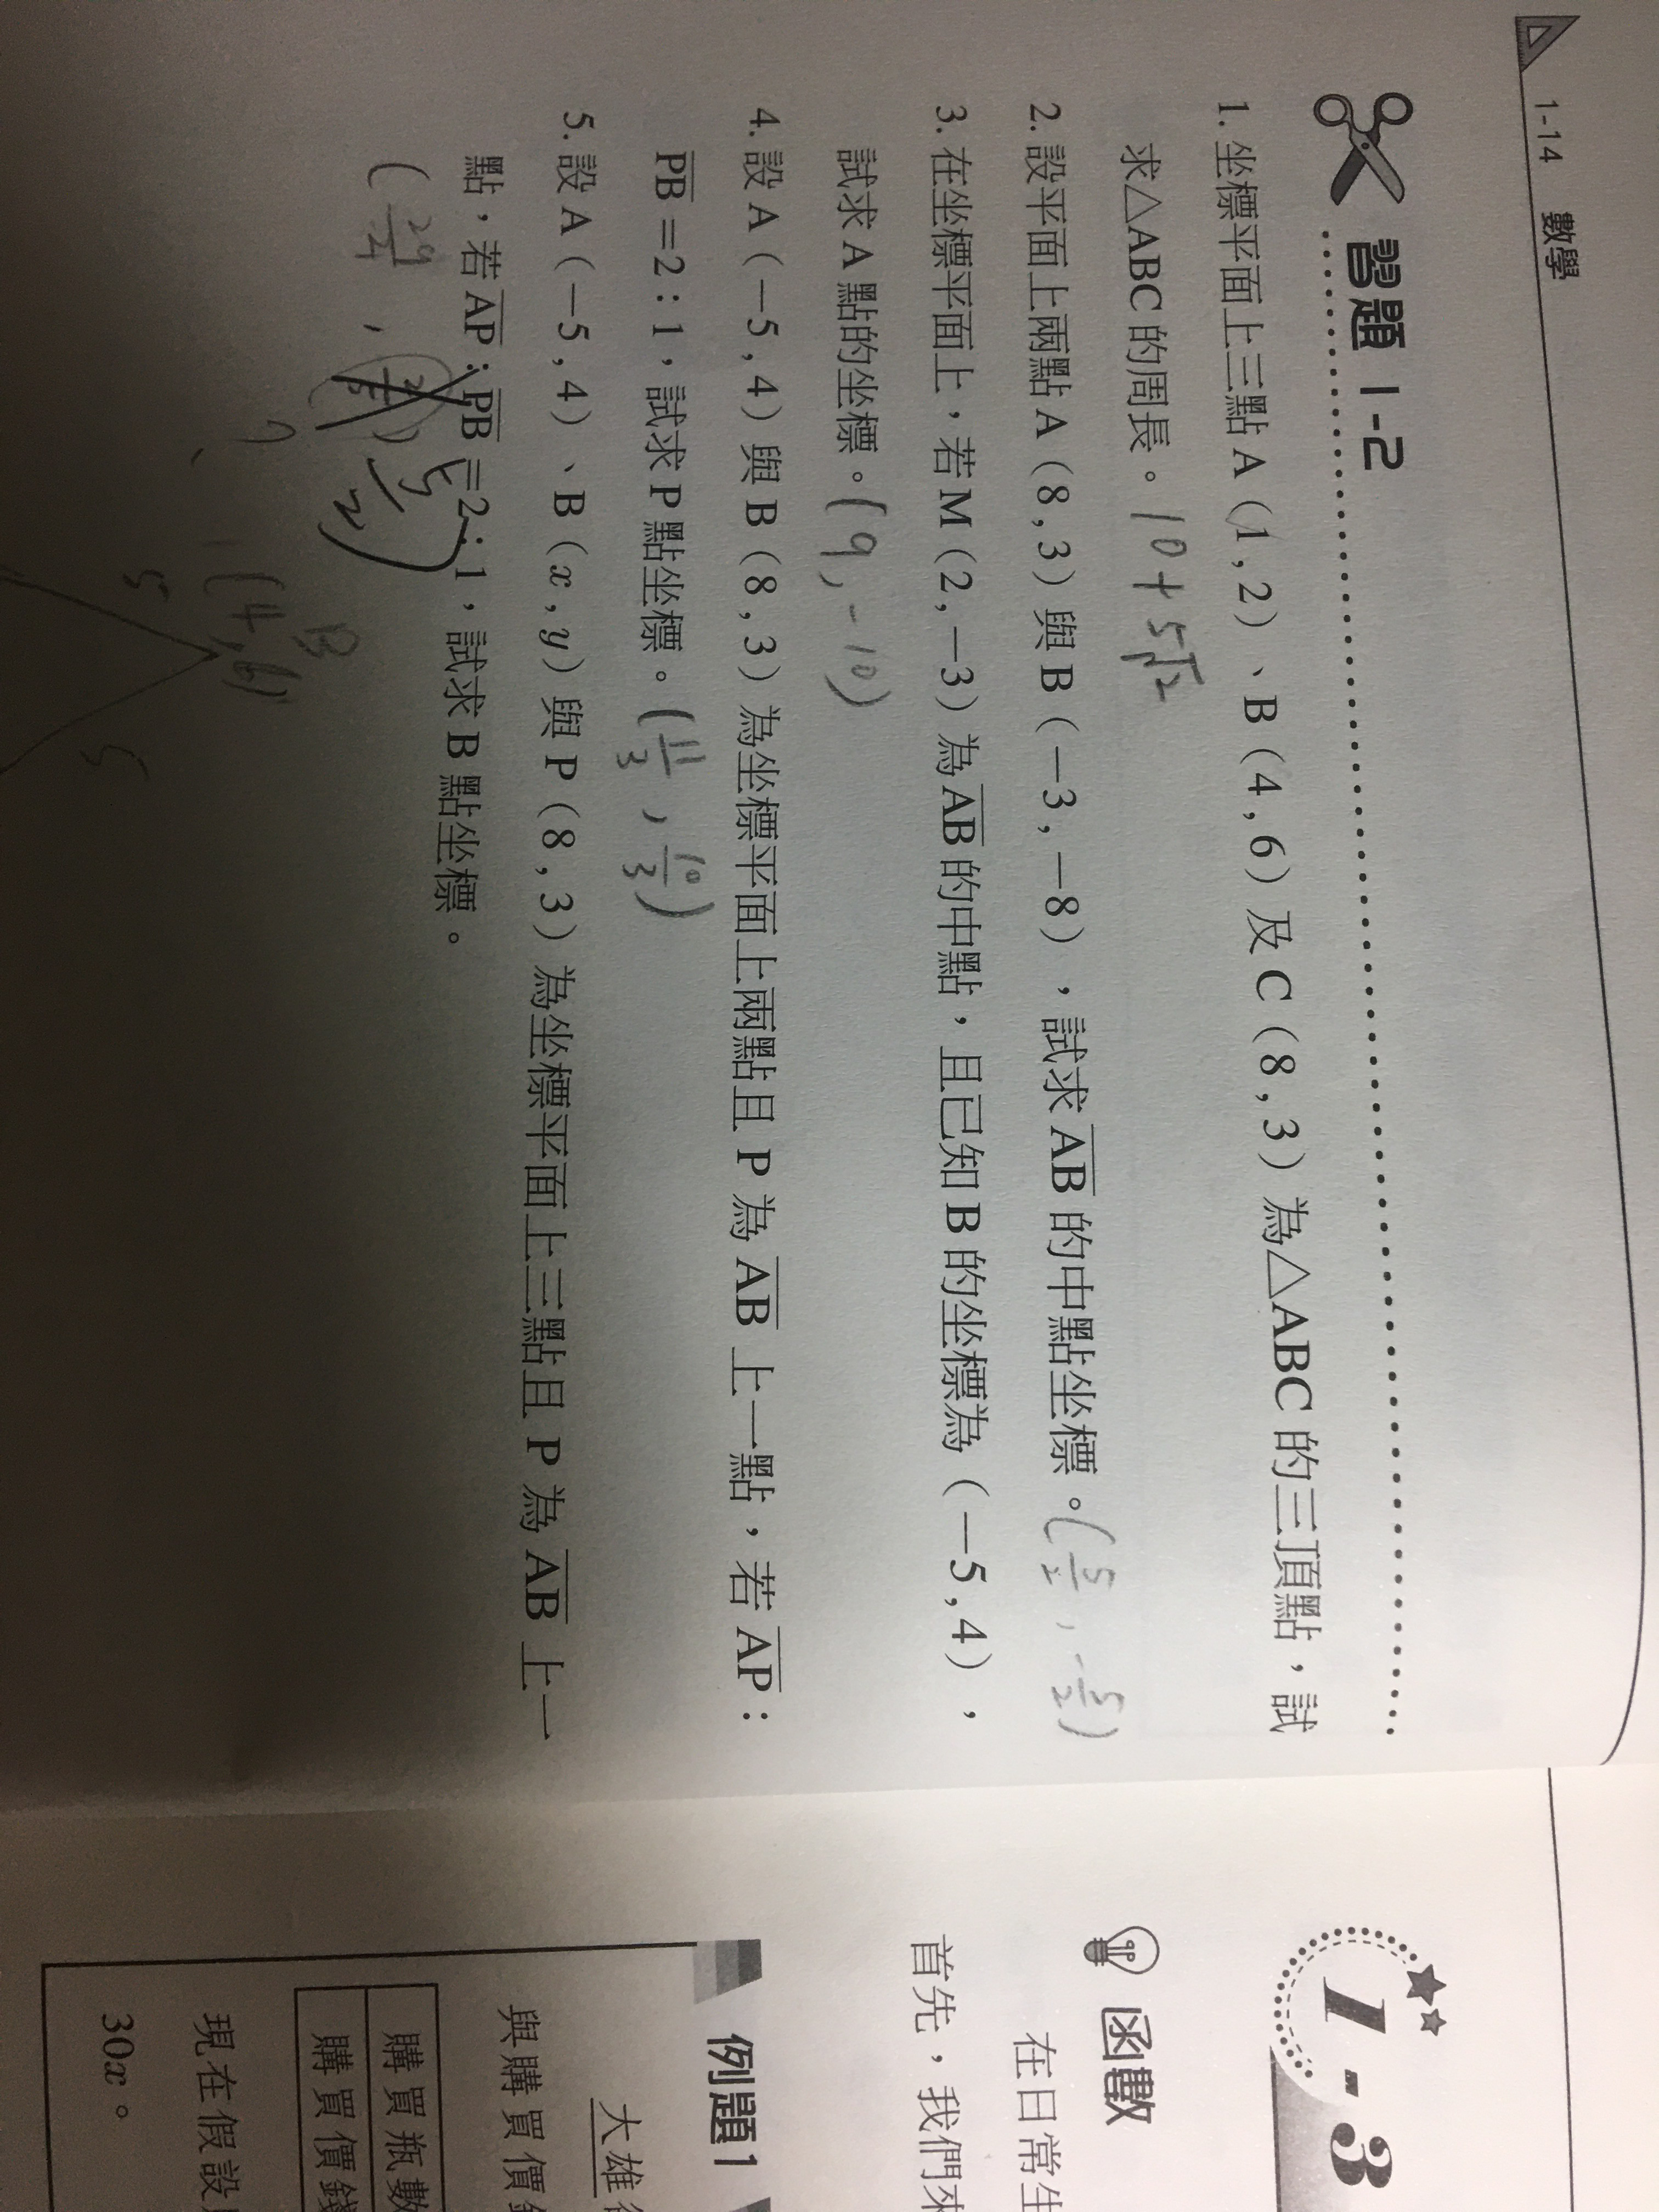 1-14 數學
習題 1-2
1. 坐標平面上三點 A（1 , 2）、B（4 , 6）及 C（8 , 3）為△ABC 的三頂點，試
求△ABC 的周長。10+5√2
2. 設平面上兩點 A（8 , 3）與 B（−3 , −8），試求 AB 的中點坐標。(5/2 , -5/2)
3. 在坐標平面上，若 M（2 , −3）為 AB 的中點，且已知 B 的坐標為（−5 , 4），
試求 A 點的坐標。(9, -10)
4. 設 A（−5 , 4）與 B（8 , 3）為坐標平面上兩點且 P 為 AB 上一點，若 AP：
PB＝2：1，試求 P 點坐標。(11/3 , 10/3)
5. 設 A（−5 , 4）、B（x , y）與 P（8 , 3）為坐標平面上三點且 P 為 AB 上一
點，若 AP：PB＝2：1，試求 B 點坐標。
B
(4,6)
5
5
1-3
函數
在日常生
首先，我們來
例題 1
大雄
與購買價
購買瓶數
購買價錢
現在假設
30x。